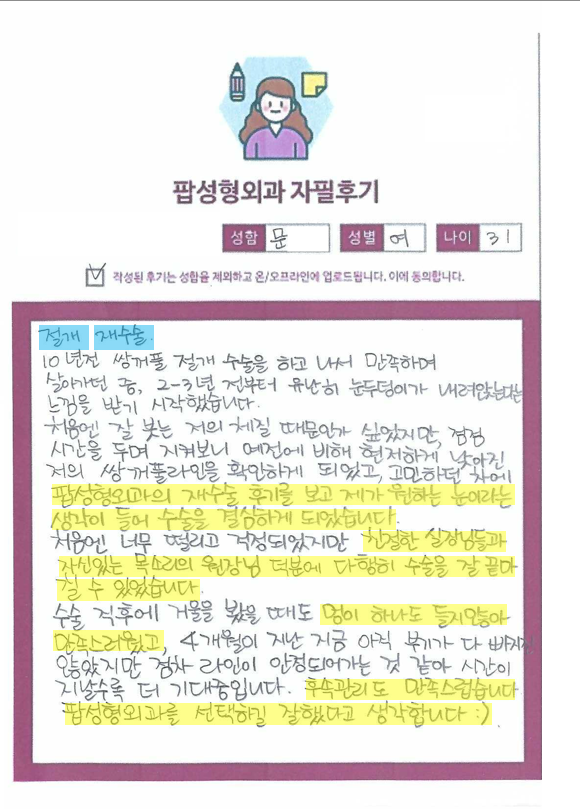 팝성형외과 자필후기
성함 문 성별 여 나이 31
작성된 후기는 성함을 제외하고 온/오프라인에 업로드됩니다. 이에 동의합니다.
절개 재수술.
10년전 쌍꺼풀 절개 수술을 하고 나서 만족하며
살아가던 중, 2-3년 전부터 유난히 눈두덩이가 내려앉는다는
느낌을 받기 시작했습니다.
처음엔 잘 붓는 저의 체질 때문인가 싶었지만, 점점
시간을 두며 지켜보니 예전에 비해 현저하게 낮아진
저의 쌍꺼풀라인을 확인하게 되었고, 고민하던 차에
팝성형외과의 재수술 후기를 보고 제가 원하는 눈이라는
생각이 들어 수술을 결심하게 되었습니다.
처음엔 너무 떨리고 걱정되었지만 친절한 실장님들과
자신있는 목소리의 원장님 덕분에 다행히 수술을 잘 끝마
칠 수 있었습니다.
수술 직후에 거울을 봤을 때도 멍이 하나도 들지않아
만족스러웠고, 4개월이 지난 지금 아직 부기가 다 빠지진
않았지만 점차 라인이 안정되어가는 것 같아 시간이
지날수록 더 기대중입니다. 후속관리도 만족스럽습니다.
팝성형외과를 선택하길 잘했다고 생각합니다 :)